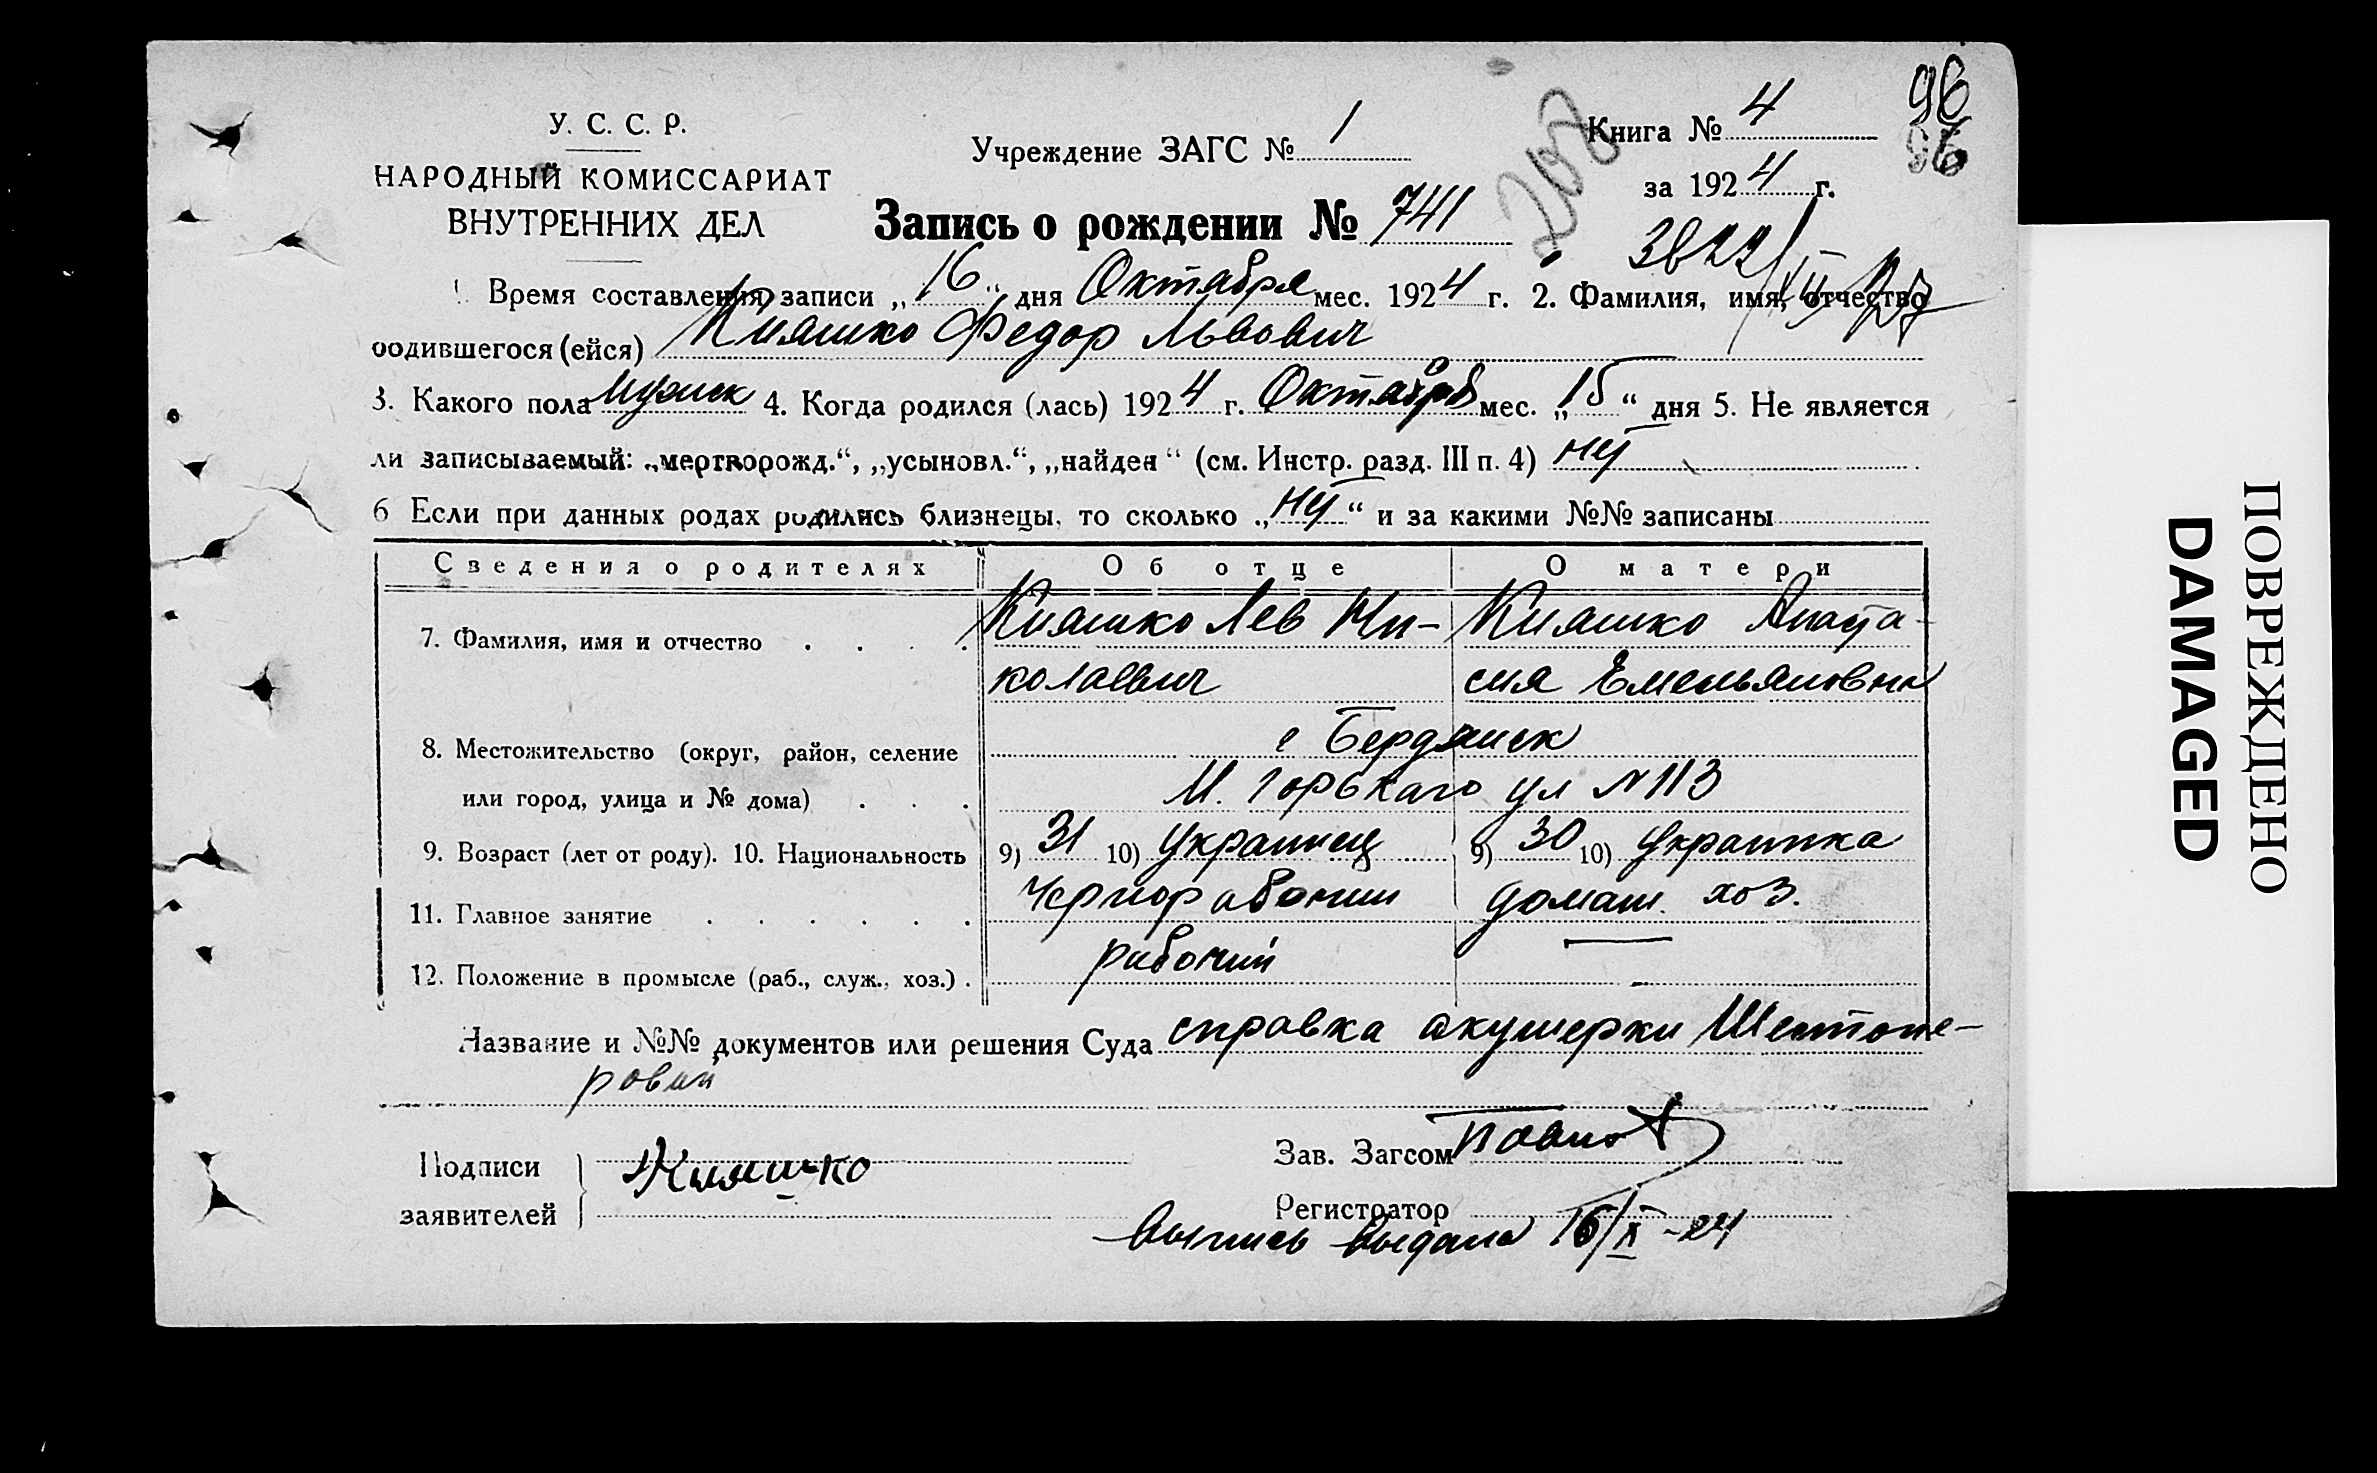 96
96
У. С. С. Р.
НАРОДНЫЙ КОМИССАРИАТ
ВНУТРЕННИХ ДЕЛ
Учреждение ЗАГС № 1
Книга № 4
за 1924 г.
Запись о рождении № 741
1. Время составления записи „16“ дня Октября мес. 1924 г. 2. Фамилия, имя, отчество
родившегося (ейся) Кияшко Федор Львович
3. Какого пола мужск 4. Когда родился (лась) 1924 г. Октября мес. „15“ дня 5. Не является
ли записываемый: „мертворожд.“, „усыновл.“, „найден“ (см. Инстр. разд. III п. 4) нет
6 Если при данных родах родились близнецы, то сколько „нет“ и за какими №№ записаны
Сведения о родителях Об отце О матери
7. Фамилия, имя и отчество . . . . Кияшко Лев Ни- Кияшко Анаста-
колаевич сия Емельяновна
8. Местожительство (округ, район, селение г Бердянск
или город, улица и № дома) . . . М. Горького ул № 113
9. Возраст (лет от роду). 10. Национальность 9) 31 10) Украинец 9) 30 10) Украинка
11. Главное занятие . . . . . . Чернорабочий домаш. хоз.
12. Положение в промысле (раб., служ., хоз.) . рабочий —
Название и №№ документов или решения Суда справка акушерки Шестопе-
ровой
Подписи
заявителей
Кияшко
Зав. Загсом
Регистратор
Выпись выдана 16/X-24
ПОВРЕЖДЕНО
DAMAGED